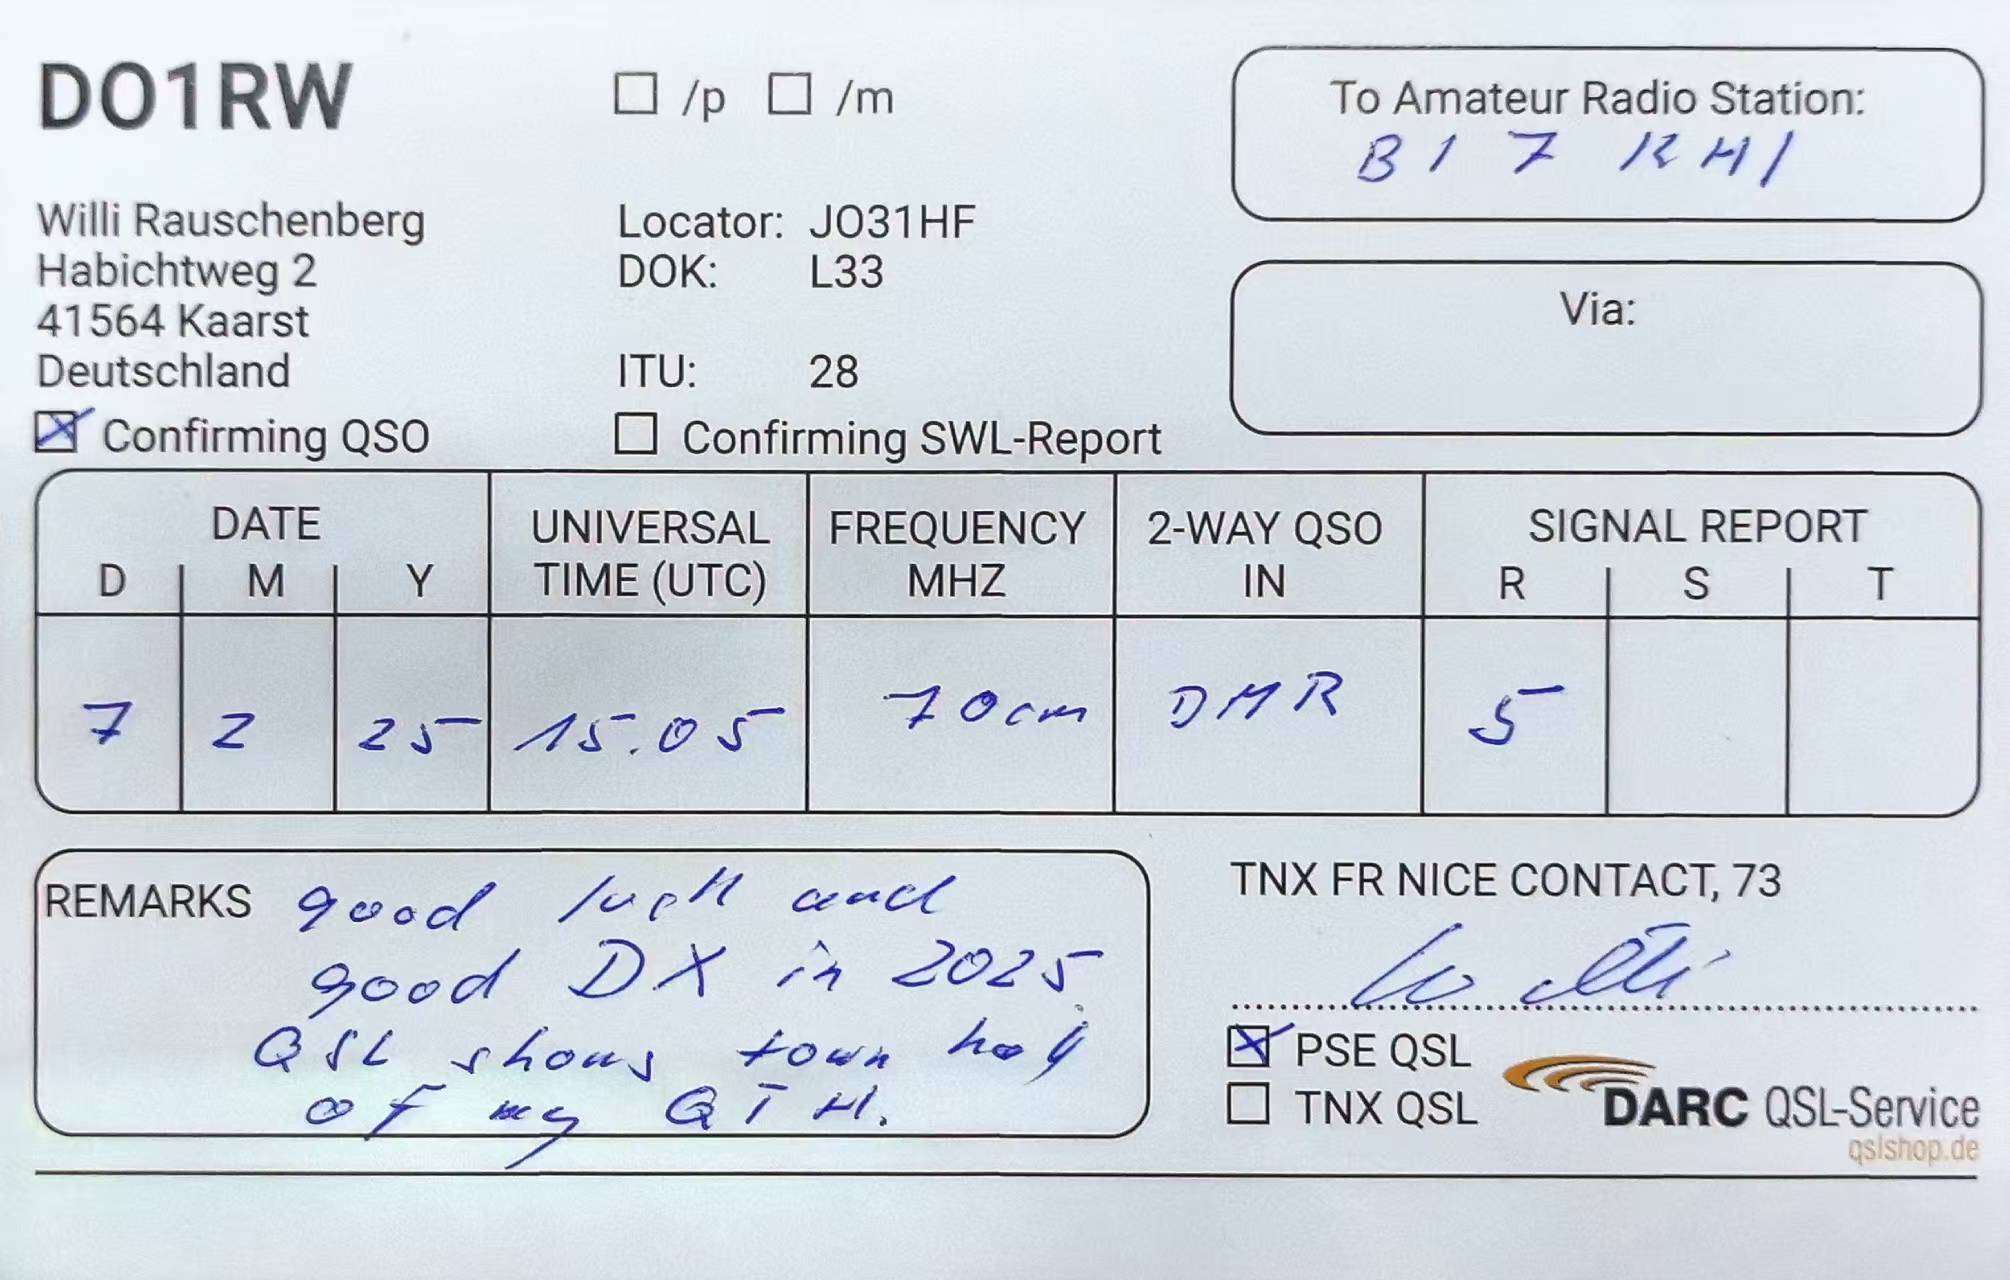 DO1RW
/p /m
To Amateur Radio Station:
BI7KHI
Willi Rauschenberg
Habichtweg 2
41564 Kaarst
Deutschland
Locator: JO31HF
DOK: L33
ITU: 28
Via:
Confirming QSO
Confirming SWL-Report
DATE
D M Y
UNIVERSAL
TIME (UTC)
FREQUENCY
MHZ
2-WAY QSO
IN
SIGNAL REPORT
R S T
7 2 25 15.05 70cm DMR 5
REMARKS good luck and
good DX in 2025
QSL shows town hall
of my QTH.
TNX FR NICE CONTACT, 73
Willi
PSE QSL
TNX QSL
DARC QSL-Service
qslshop.de